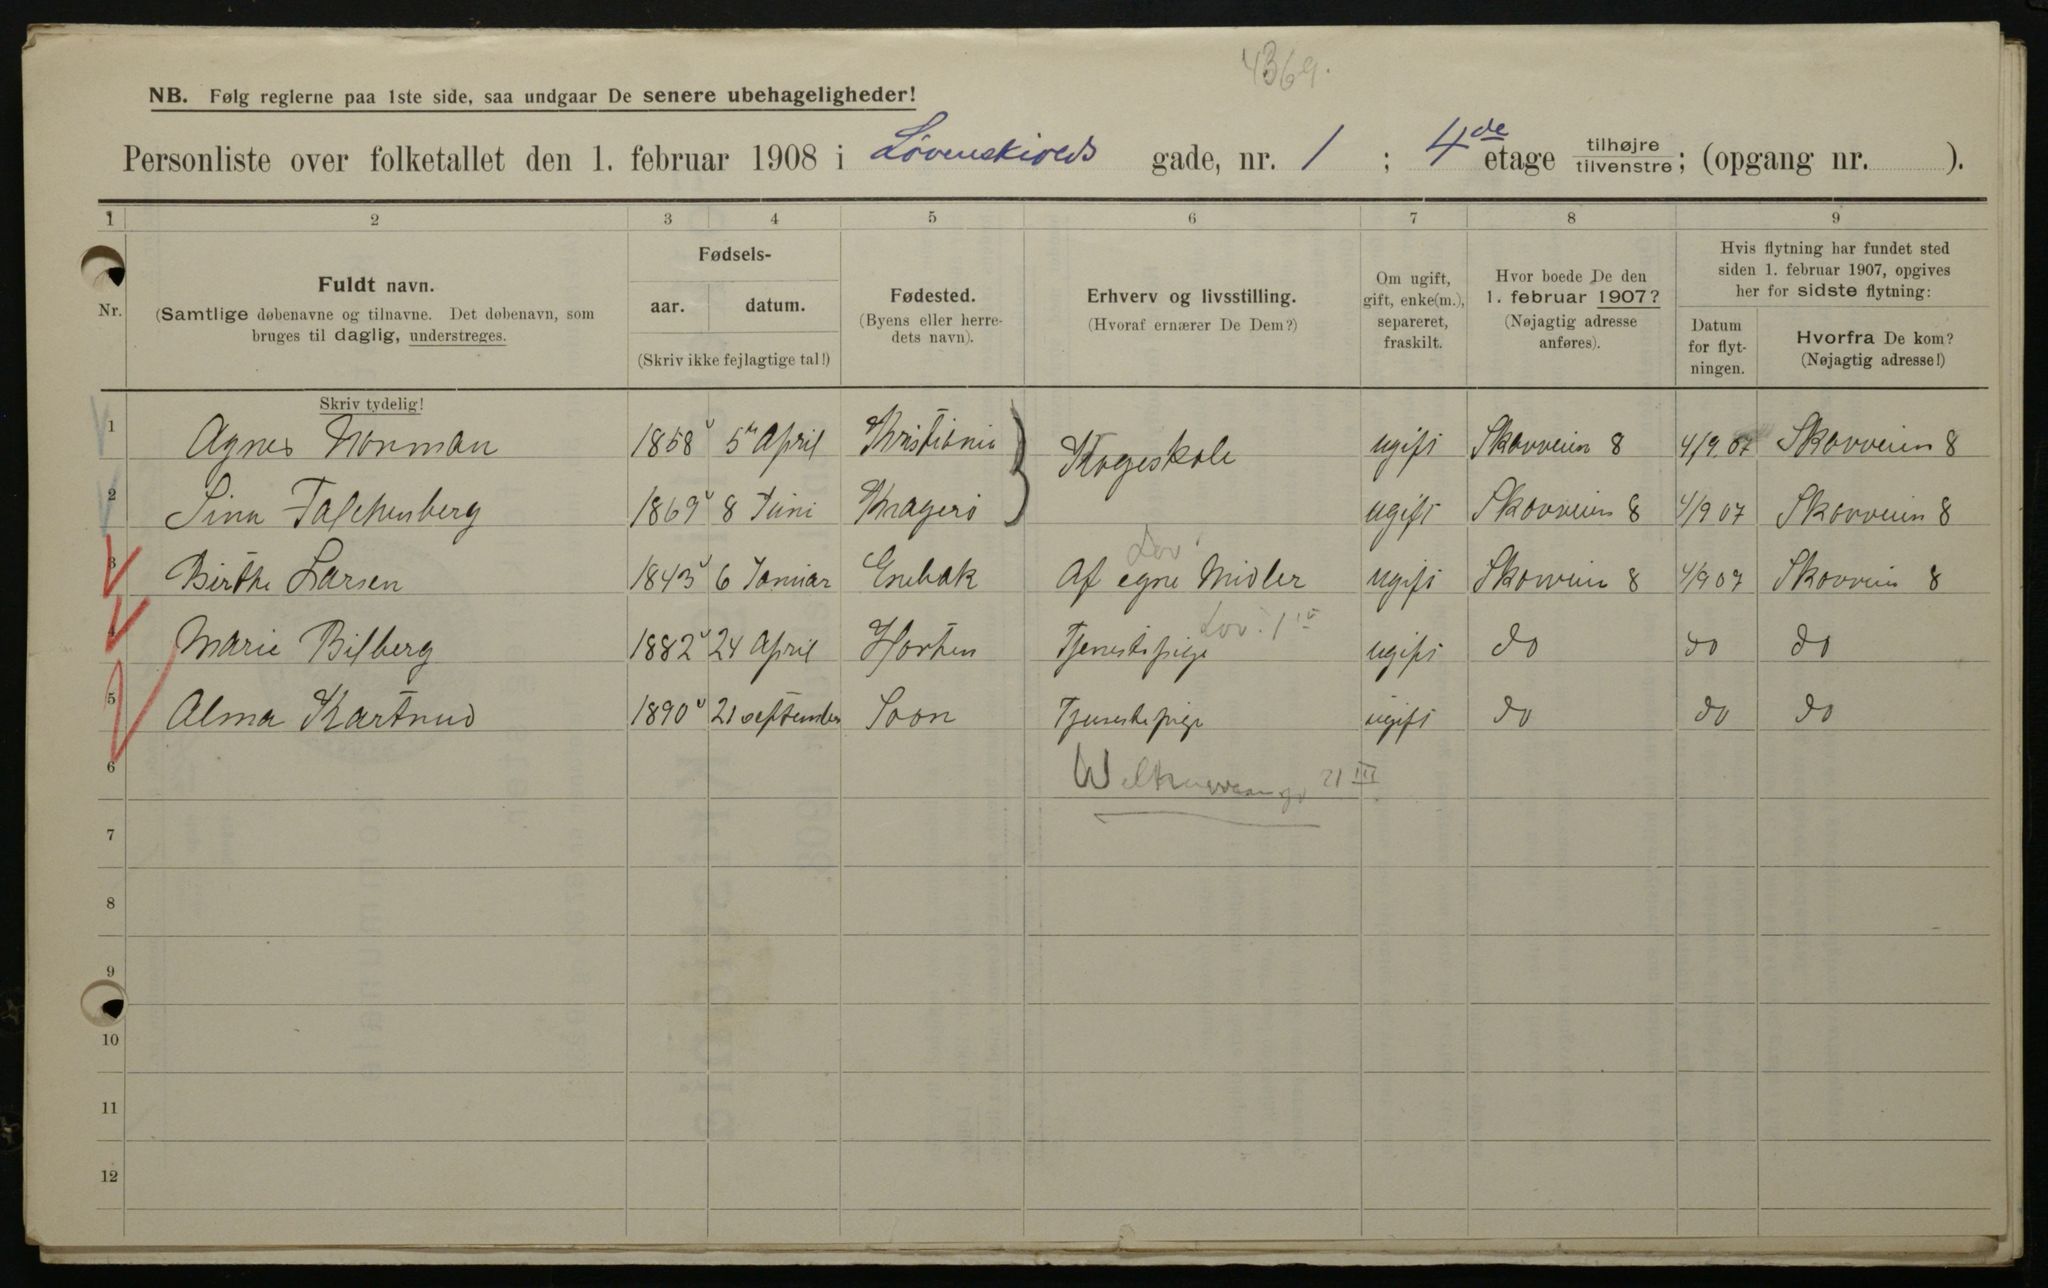 4369.
NB. Følg reglerne paa 1ste side, saa undgaar De senere ubehageligheder!
Personliste over folketallet den 1. februar 1908 i Løvenskiolds gade, nr. 1 ; 4de etage tilhøjre tilvenstre; (opgang nr. ).
1 2 3 4 5 6 7 8 9
Nr.
Fuldt navn.
(Samtlige døbenavne og tilnavne. Det døbenavn, som
bruges til daglig, understreges.
Skriv tydelig!
Fødsels-
aar. datum.
(Skriv ikke fejlagtige tal!)
Fødested.
(Byens eller herre-
dets navn).
Erhverv og livsstilling.
(Hvoraf ernærer De Dem?)
Om ugift,
gift, enke(m.),
separeret,
fraskilt.
Hvor boede De den
1. februar 1907?
(Nøjagtig adresse
anføres).
Hvis flytning har fundet sted
siden 1. februar 1907, opgives
her for sidste flytning:
Datum
for flyt-
ningen.
Hvorfra De kom?
(Nøjagtig adresse!)
1 Agnes Norman 1858 5 April Kristiania Kogeskole ugift Skovveien 8 4/9 07 Skovveien 8
2 Sina Falchenberg 1869 8 Juni Kragerö ugift Skovveien 8 4/9 07 Skovveien 8
3 Birthe Larsen 1843 6 Januar Enebak Af egne Midler ugift Skovveien 8 4/9 07 Skovveien 8
4 Marie Bilberg 1882 24 April Horten Tjenestepige ugift do do do
5 Alma Kartnud 1890 21 september Soon Tjenestepige ugift do do do
6
21 III
7
8
9
10
11
12